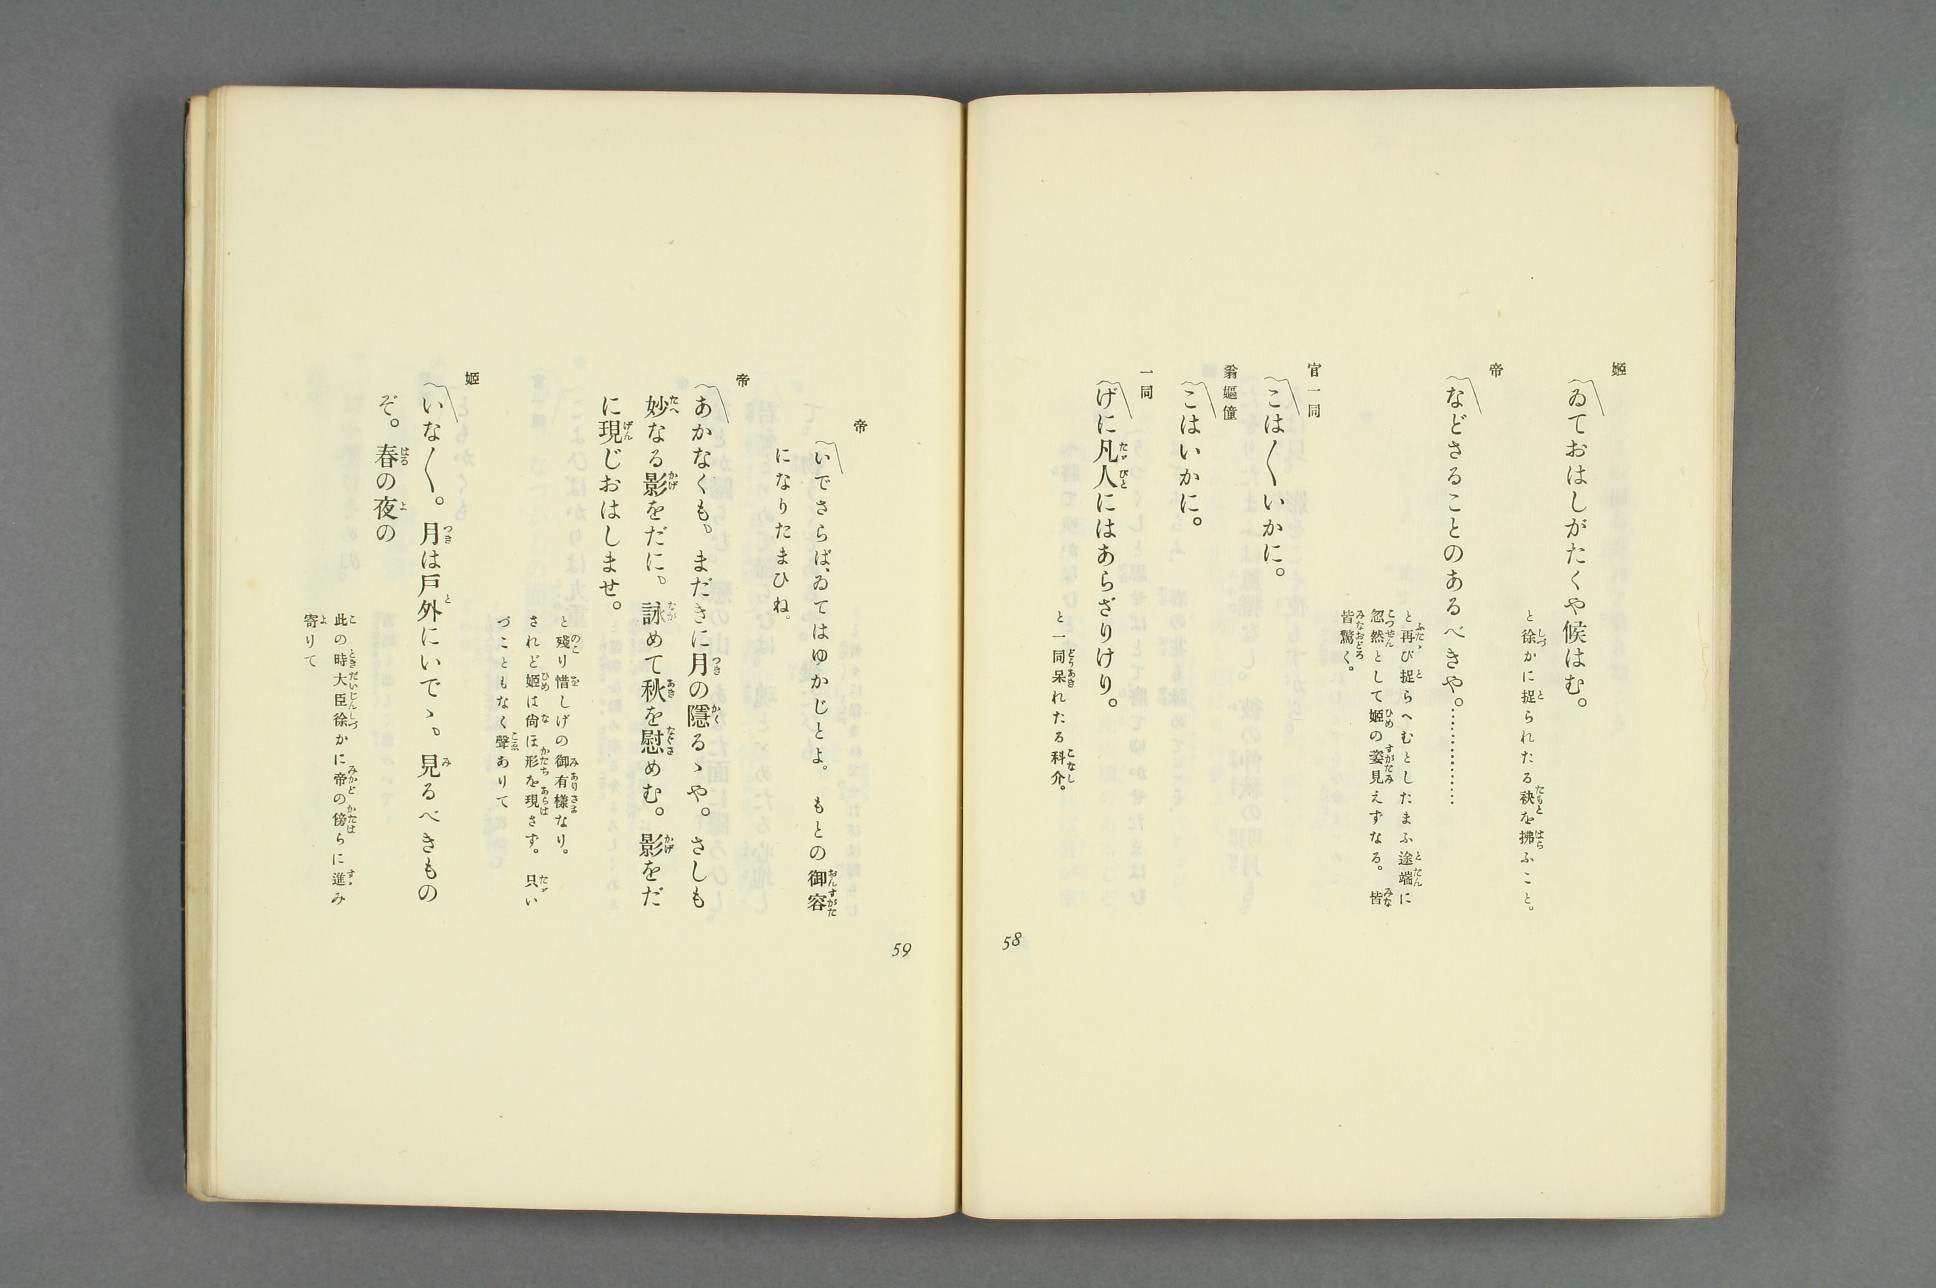 姫
〽ゐておはしがたくや候はむ。
と徐かに捉られたる袂を拂ふこと。
帝
〽などさることのあるべきや。……………
と再び捉らへむとしたまふ途端に
忽然として姫の姿見えずなる。皆
皆驚く。
官一同
〽こは〱いかに。
翁嫗僮
〽こはいかに。
一同
〽げに凡人にはあらざりけり。
と一同呆れたる科介。
58
帝
〽いでさらば、ゐてはゆかじとよ。もとの御容
になりたまひね。
帝
〽あかなくも、まだきに月の隱るゝや。さしも
妙なる影をだに、詠めて秋を慰めむ。影をだ
に現じおはしませ。
と殘り惜しげの御有樣なり。
されど姫は尙ほ形を現さず。只い
づこともなく聲ありて
姫
〽いな〱。月は戸外にいでゝ、見るべきもの
ぞ。春の夜の
此の時大臣徐かに帝の傍らに進み
寄りて
59